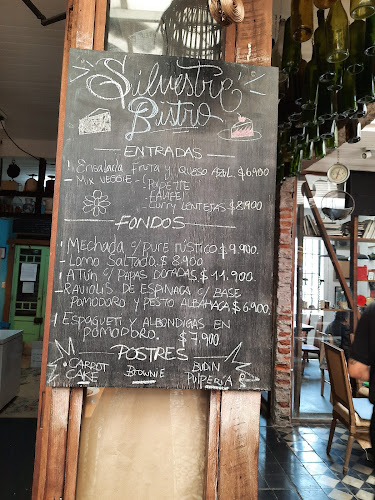 Silvestre
Bistro
ENTRADAS
Ensalada Fruta y Queso Azul $6.900
- Mix VEGGIE -
FONDOS
- Mechada c/ puré rústico $9.900.
- Lomo Saltado. $8.900
- Atún c/ Papas Doradas, $11.900.
- Raviolis de Espinaca c/ Base
Pomodoro y Pesto Albahaca $6.900.
Espagueti y Albondigas en
Pomodoro. $7.900
POSTRES
CARROT
CAKE
Brownie
Budin